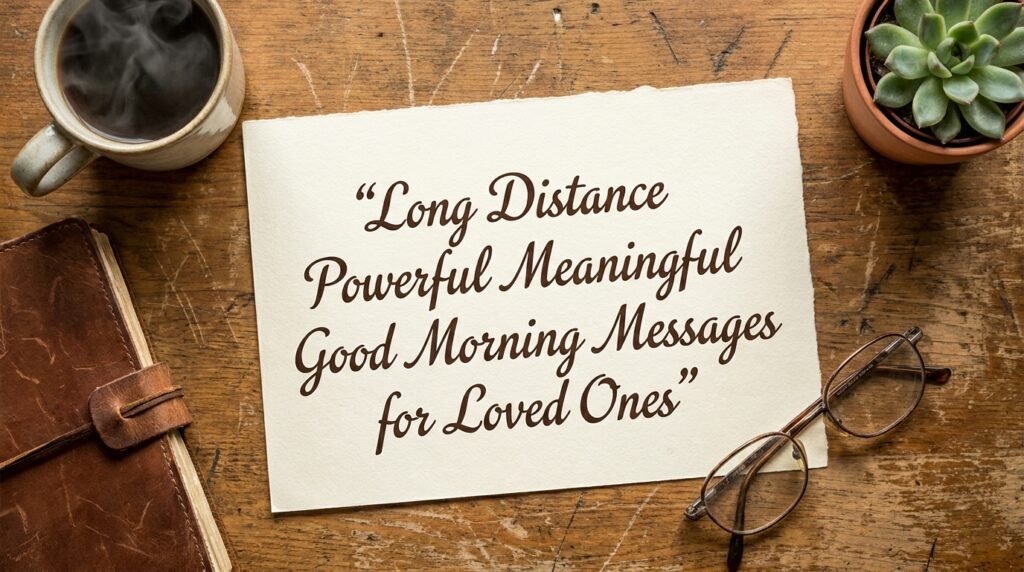 “Long Distance
Powerful Meaningful
Good Morning Messages
for Loved Ones”